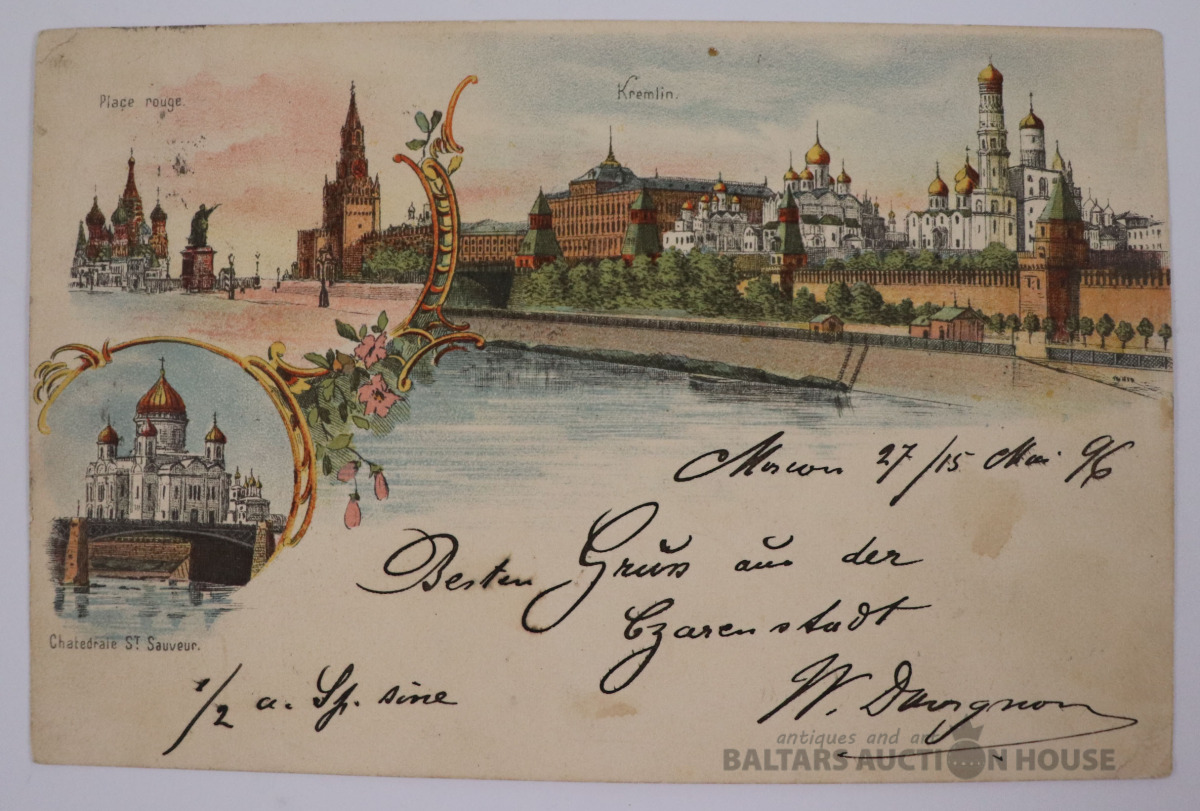 Plaçe rouge.
Kremlin.
Chatedrale ST. Sauveur.
Moscou 27/15 Mai 96
Besten Gruss aus der
Czarenstadt
1/2 a. Sp. sine
W. Davignon
antiques and art
BALTARS AUCTION HOUSE